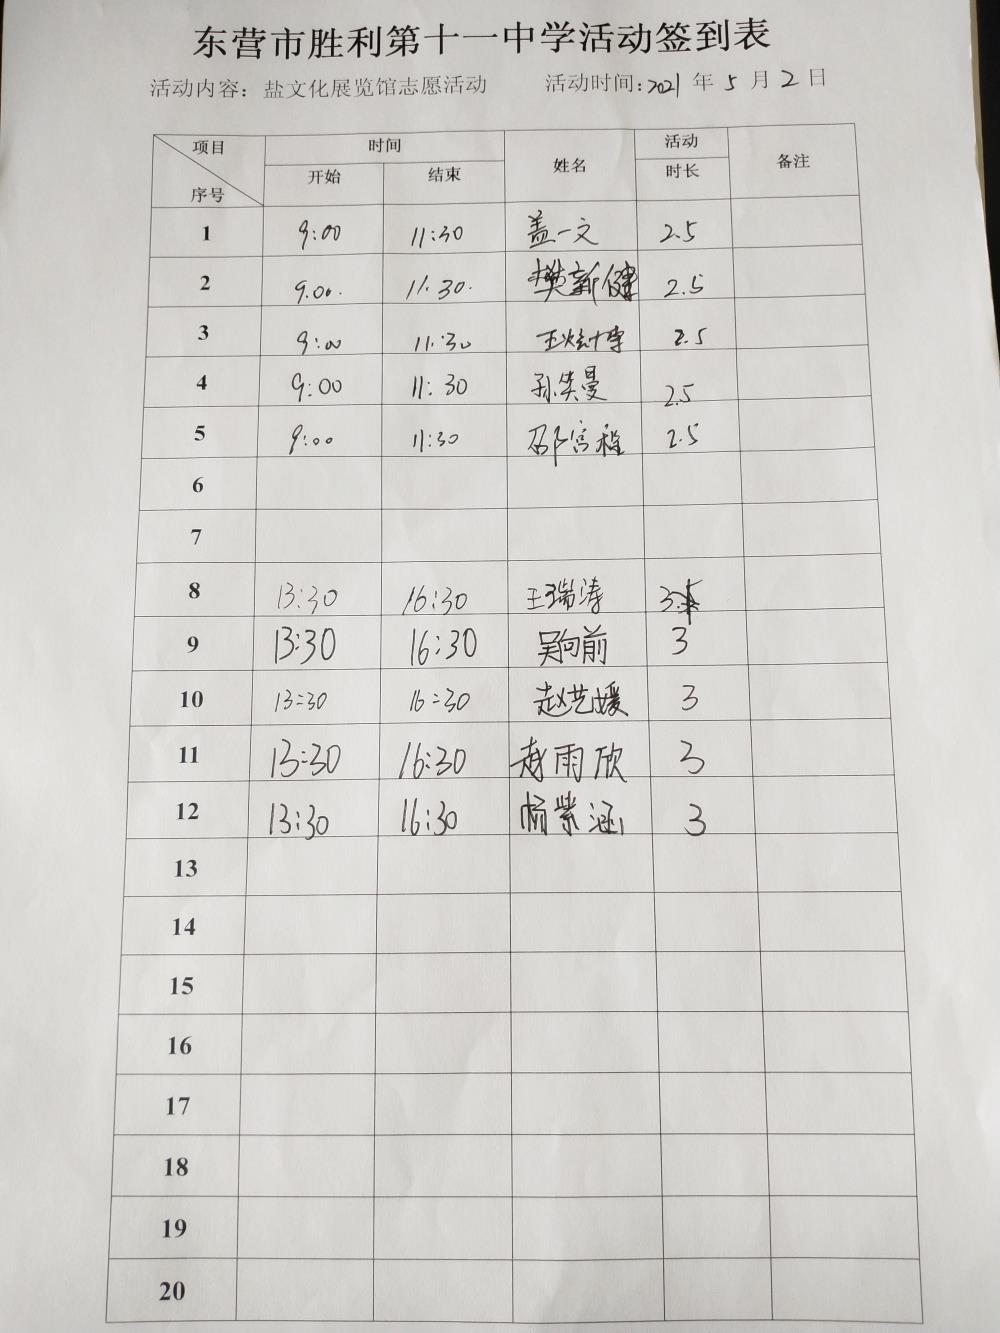 东营市胜利第十一中学活动签到表
活动内容：盐文化展览馆志愿活动 活动时间：2021年5月2日
项目 时间 姓名 活动 备注
序号 开始 结束 时长
1 9:00 11:30 盖一文 2.5
2 9.00. 11.30. 樊新健 2.5
3 9:00 11:30 2.5
4 9:00 11:30 孙笑曼 2.5
5 9:00 11:30 邵宫程 2.5
6
7
8 13:30 16:30 王瑞涛 3
9 13:30 16:30 吴向前 3
10 13:30 16:30 赵艺媛 3
11 13:30 16:30 赵雨欣 3
12 13:30 16:30 杨紫涵 3
13
14
15
16
17
18
19
20